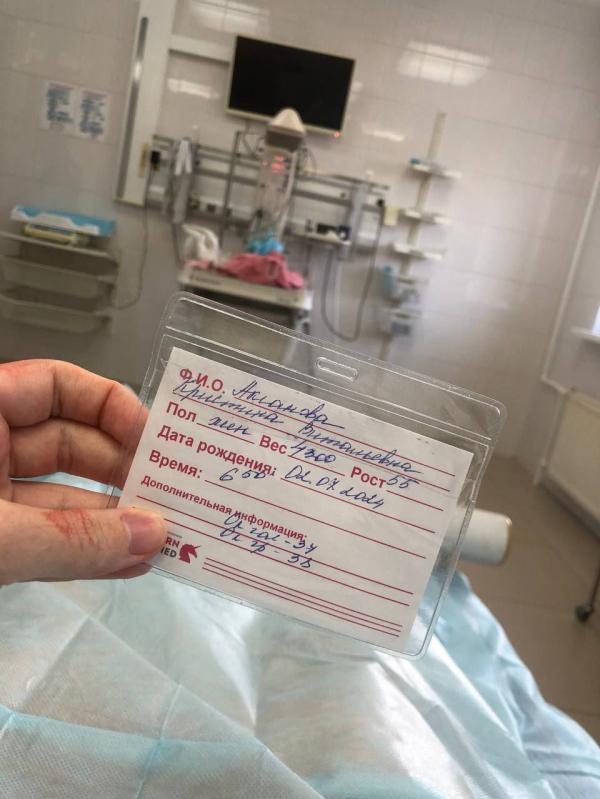 Ф.И.О. Аксанова
Кристина Витальевна
Пол жен Вес 4300 Рост 55
Дата рождения: 02.07.2024
Время: 6 50
Дополнительная информация:
Ок гол - 34
Ок гр - 35